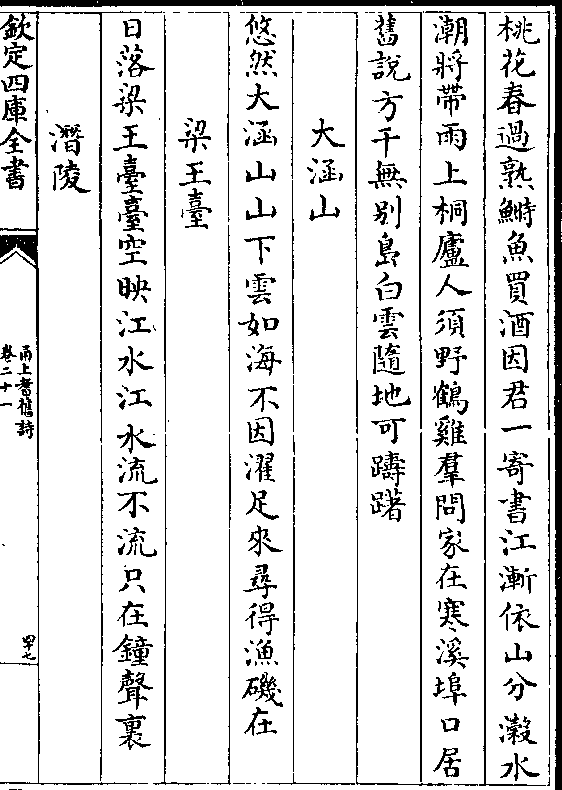 桃花春過熟鰣魚買酒因君一寄書江漸依山分瀫水
潮將帶雨上桐廬人須野鶴雞羣問家在寒溪埠口居
舊說方干無别島白雲隨地可躊躇
大涵山
悠然大涵山山下雲如海不因濯足來尋得漁磯在
梁王臺
日落梁王臺臺空映江水江水流不流只在鐘聲裏
潛陵
欽定四庫全書
甬上耆舊詩
卷二十一
四十七